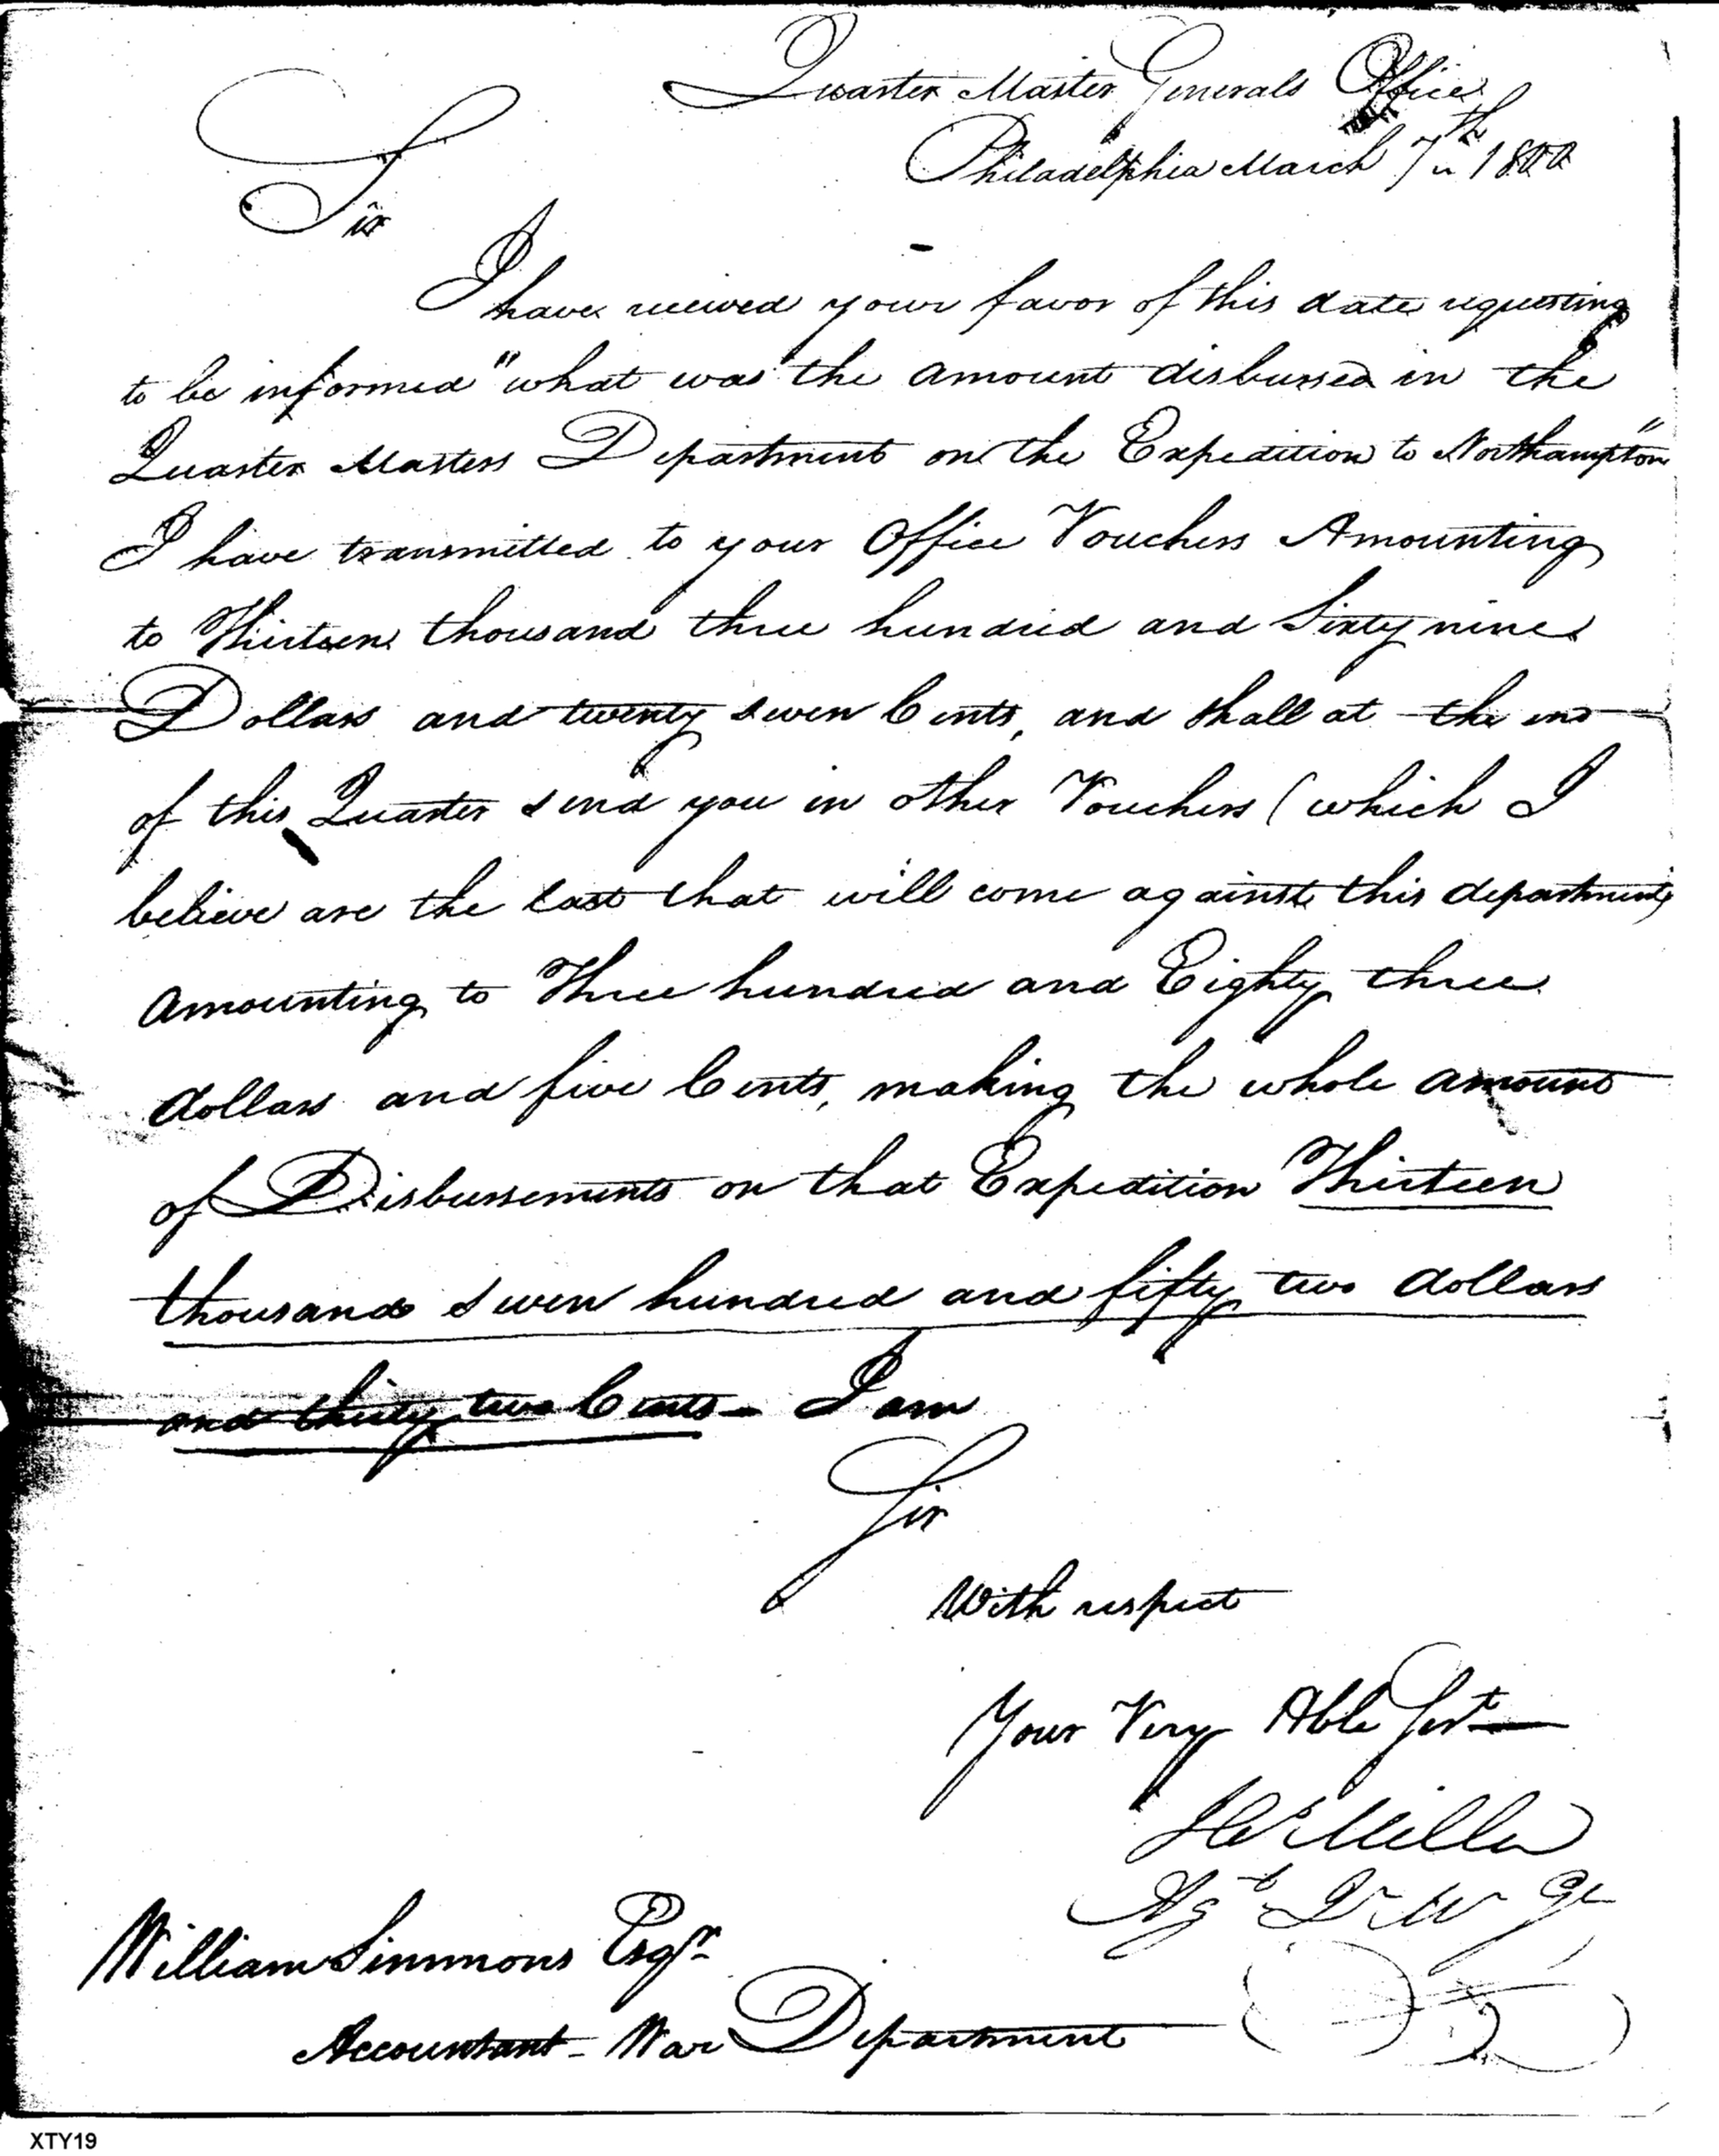 Quarter Master Generals Office
Philadelphia March 7th 1800
Sir
I have received your favor of this date requesting
to be informed "what was the amount disbursed in the
Quarter Masters Department on the Expedition to Northampton"
I have transmitted to your Office Vouchers Amounting
to Thirteen thousand three hundred and Sixty nine
Dollars and twenty seven Cents, and shall at the end
of this Quarter send you in other Vouchers (which I
believe are the last that will come against this department)
Amounting to Three hundred and Eighty three
dollars and five Cents, making the whole amount
of Disbursements on that Expedition Thirteen
thousand seven hundred and fifty two dollars
and thirty two Cents - I am
Sir
With respect
Your Very Able Servt
Miller
Agt Qr Mr Gl
William Simmons Esqr
Accountant - War Department
XTY19